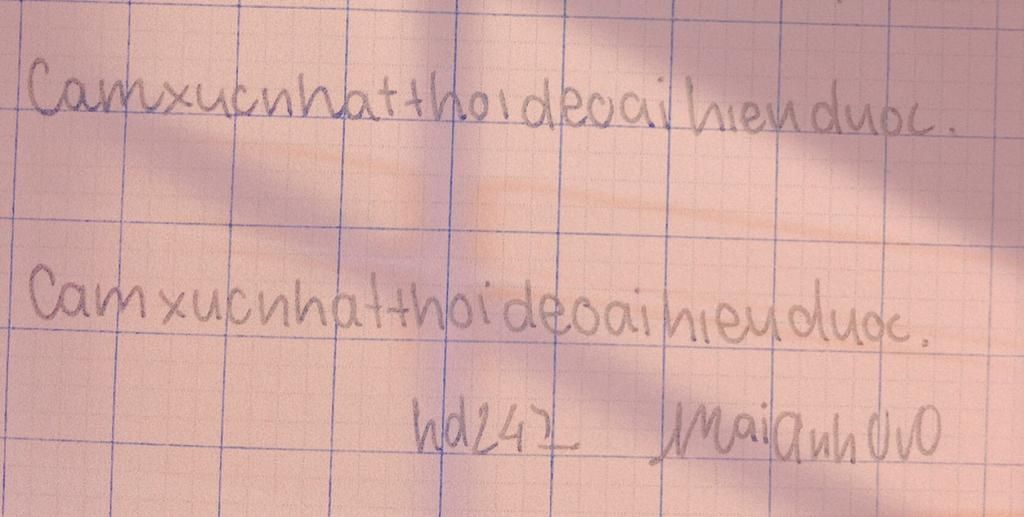 Camxucnhatthoideoaihieuduoc.
Camxucnhatthoideoaihieuduoc.
hd247 MaiAnh0v0